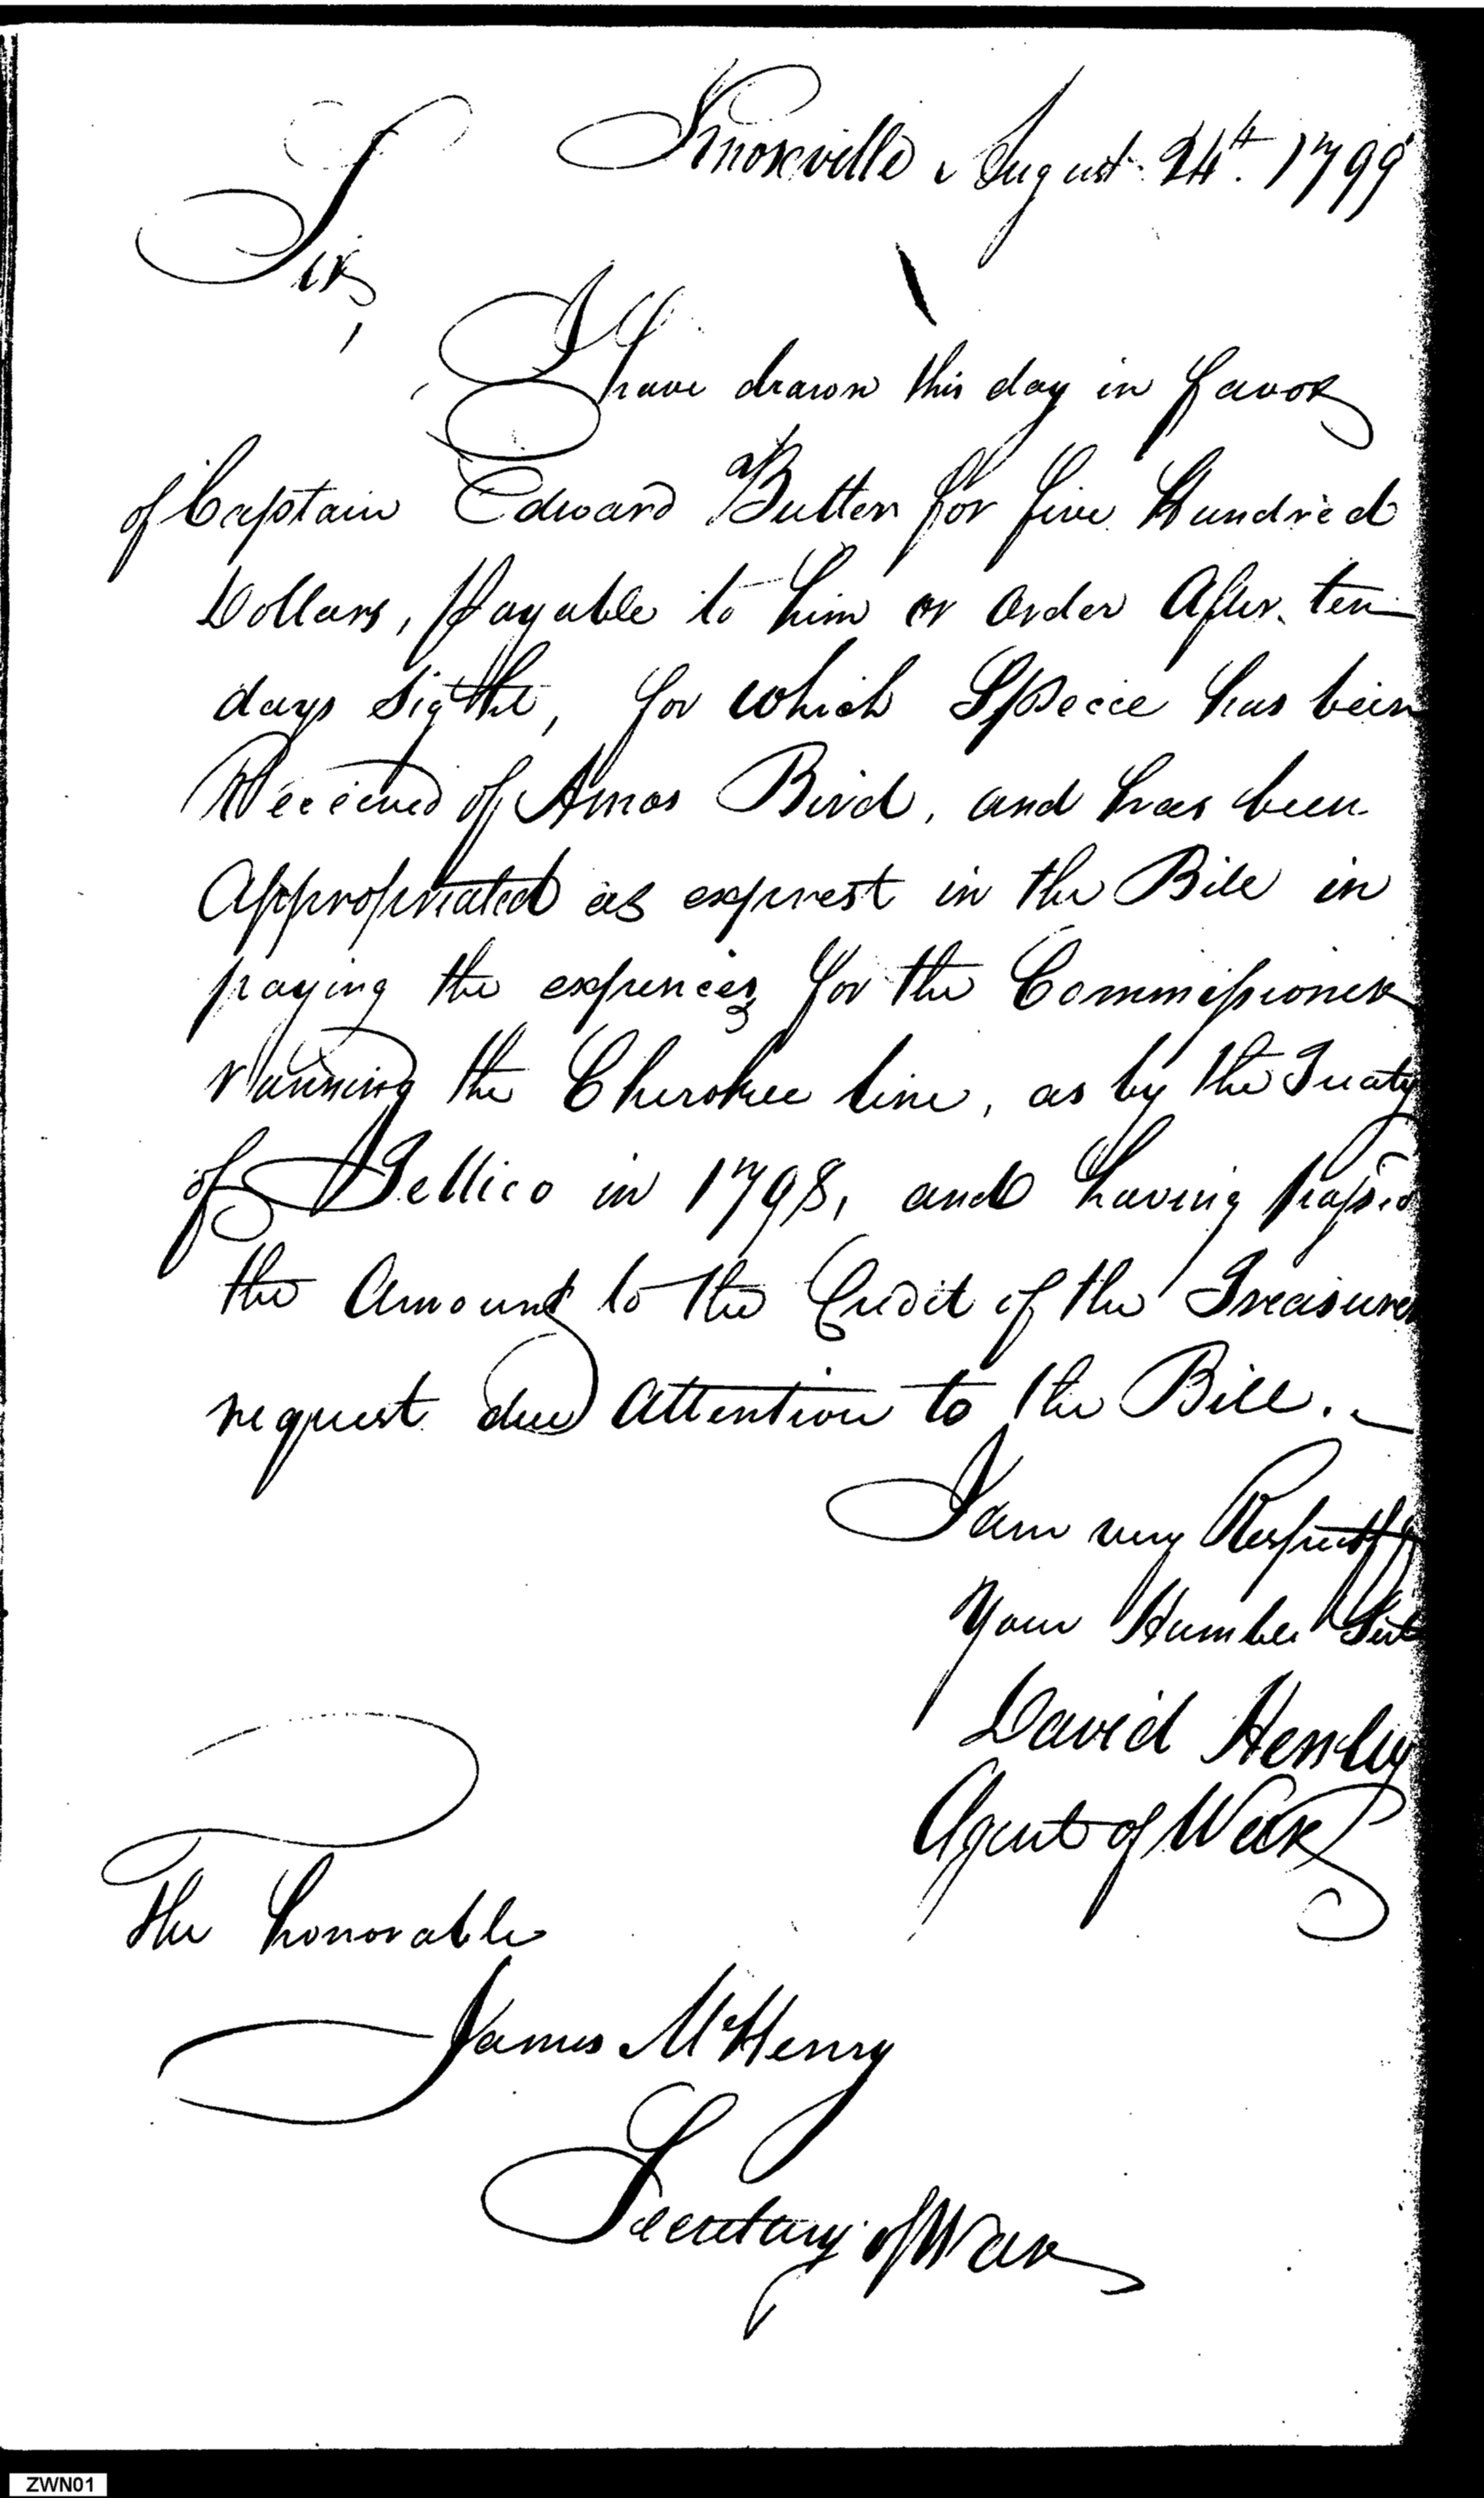 Knoxville August 24th. 1799
Sir,
I have drawn this day in favor
of Captain Edward Butler for five Hundred
Dollars, payable to him or order After ten
days sigthe, for which Specie has been
Received of Amos Bird, and has been
Appropriated as exprest in the Bill in
paying the expences for the Commissioner
running the Cherokee line, as by the Treaty
of Tellico in 1798, and having passed
the Amount to the Credit of the Treasurer
request due Attention to the Bill.
I am very Respectfy
Your Humble Svt
David Henley
Agent of War
The honorable
James McHenry
Secretary of War
ZWN01